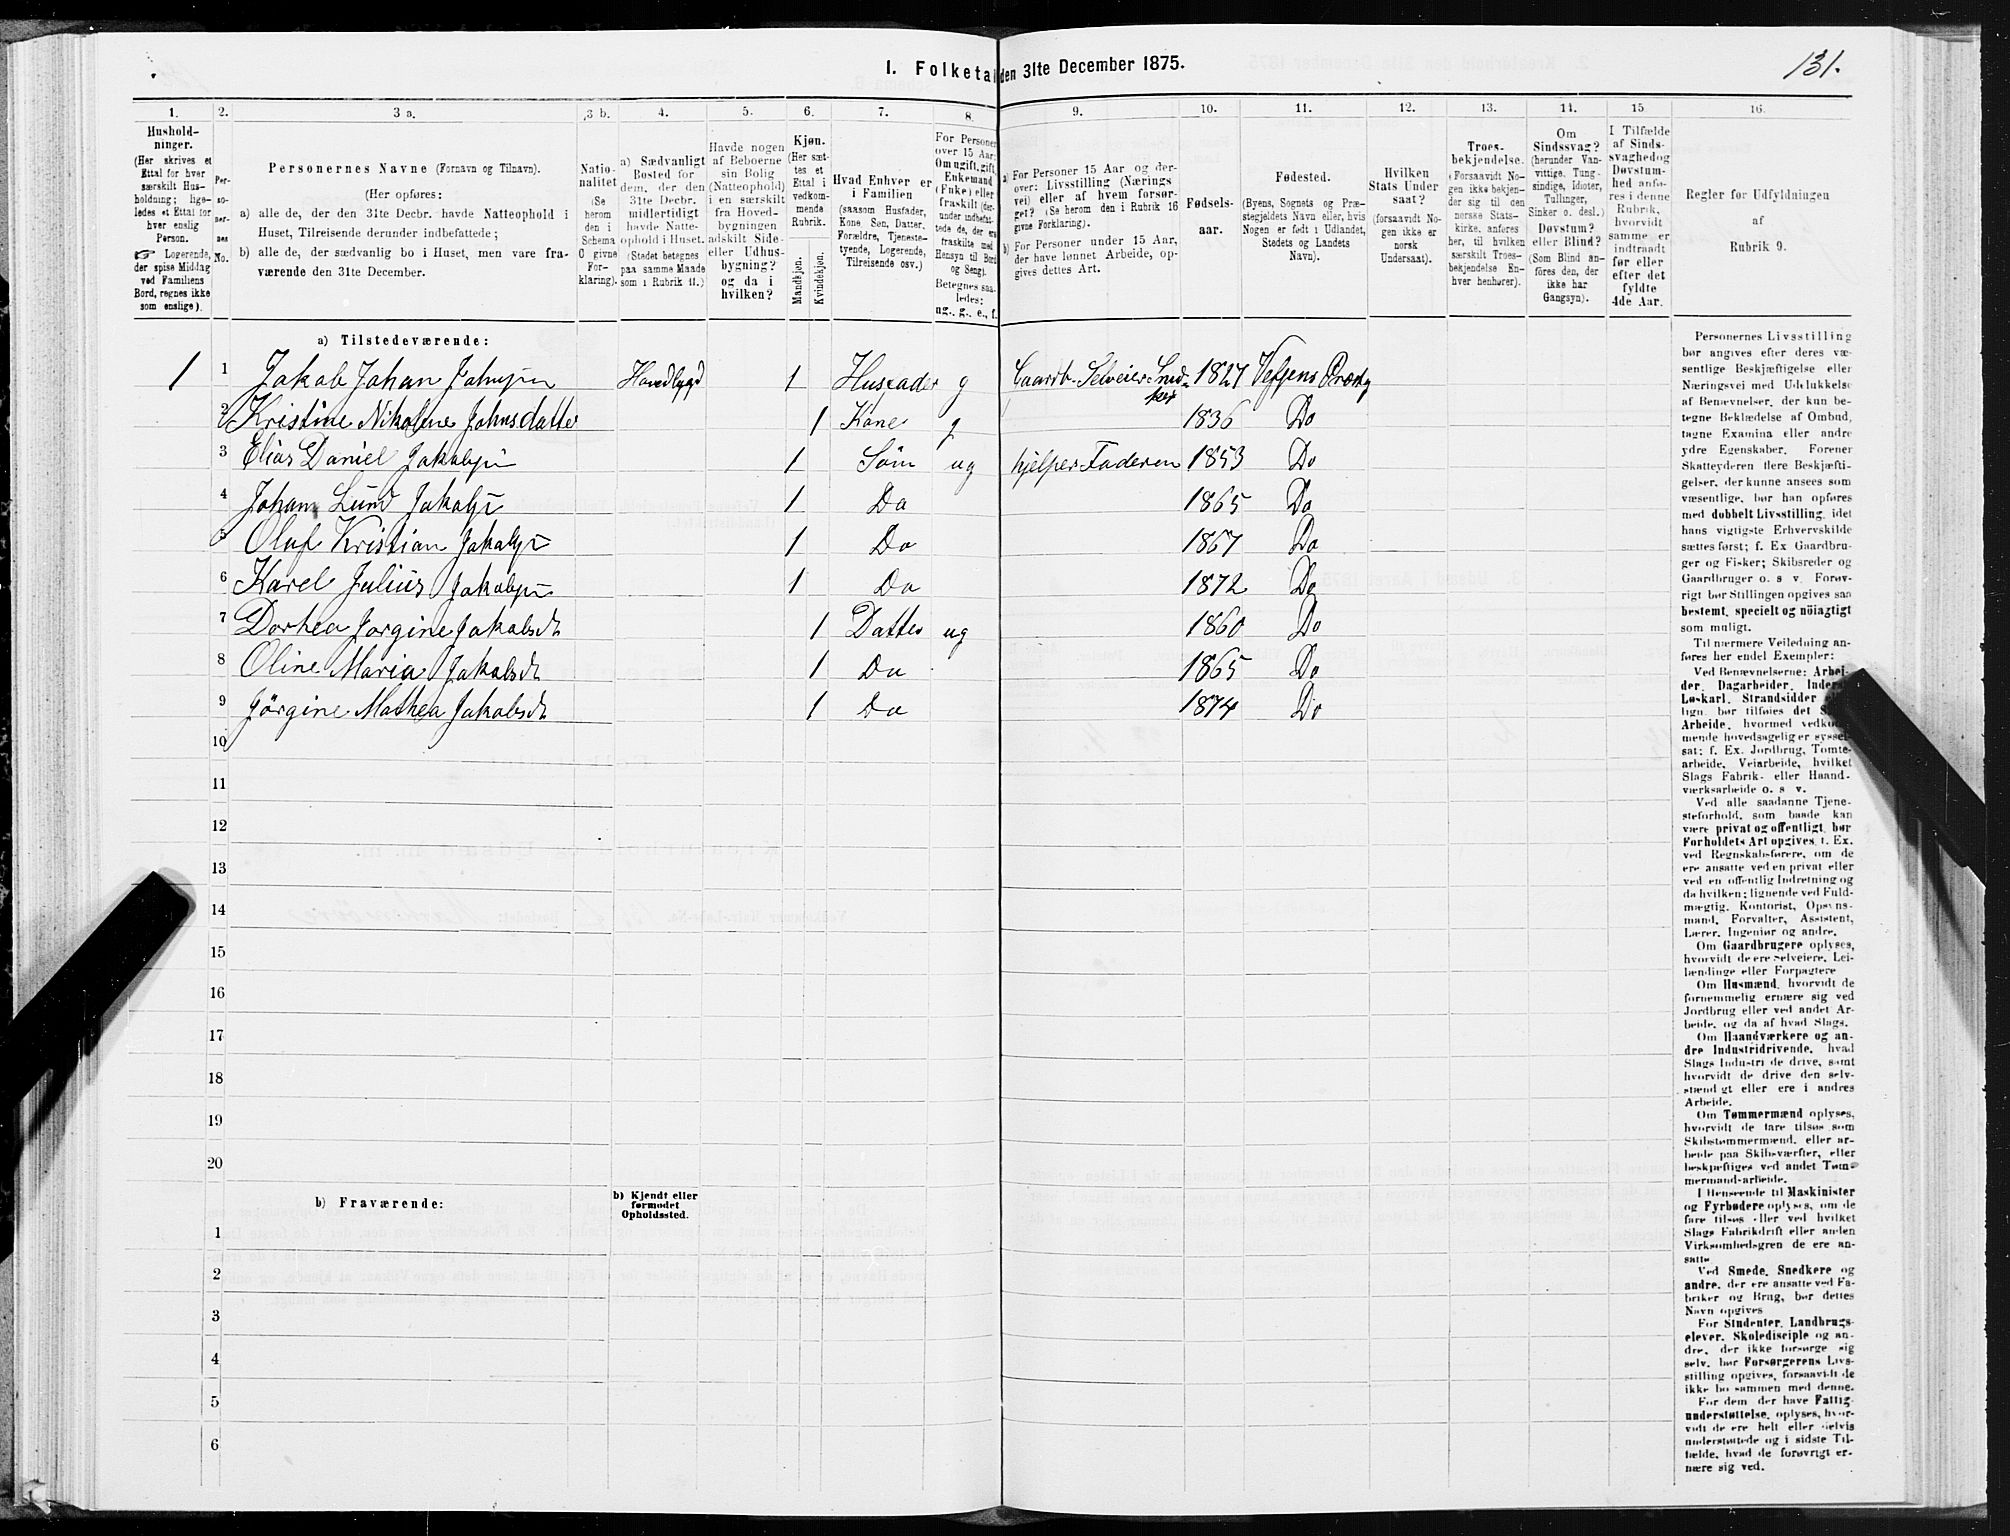 131.
I. Folketæ
den 31te December 1875.
1. 2. 3 a. 3 b. 4. 5. 6. 7. 8. 9. 10. 11. 12. 13. 14. 15. 16.
Hushold-
ninger.
(Her skrives et
Ettal for hver
særskilt Hus-
holdning; lige-
ledes et Ettal for
hver enslig
Person.
☞ Logerende,
der spise Middag
ved Familiens
Bord, regnes ikke
som enslige).
Per-
so-
ner-
nes
No.
Personernes Navne (Fornavn og Tilnavn).
(Her opføres:
a) alle de, der den 31te Decbr. havde Natteophold i
Huset, Tilreisende derunder indbefattede;
b) alle de, der sædvanlig bo i Huset, men vare fra-
værende den 31te December.
Natio-
nalitet
(Se
herom
den i
Schema
O givne
For-
klaring).
a) Sædvanligt
Bosted for
dem, der den
31te Decbr.
midlertidigt
havde Natte-
ophold i Huset.
(Stedet betegnes
paa samme Maade
som i Rubrik 11.)
Havde nogen
af Beboerne
sin Bolig
(Natteophold)
i en særskilt
fra Hoved-
bygningen
adskilt Side-
eller Udhus-
bygning?
og da i
hvilken?
Kjøn.
(Her sæt-
tes et
Ettal i
vedkom-
mende
Rubrik.
Mandkjøn.
Kvindekjøn.
Hvad Enhver er
i Familien
(saasom Husfader,
Kone, Søn, Datter,
Forældre, Tjeneste-
tyende, Logerende,
Tilreisende osv.)
For Personer
over 15 Aar:
Om ugift, gift,
Enkemand
(Enke) eller
fraskilt (der-
under indbefat-
tede de, der ere
fraskilte med
Hensyn til Bord
og Seng).
Betegnes saa-
ledes:
ug., g., e., f.
a) For Personer 15 Aar og der-
over: Livsstilling (Nærings
vei) eller af hvem forsør-
get? (Se herom den i Rubrik 16
givne Forklaring).
b) For Personer under 15 Aar,
der have lønnet Arbeide, op-
gives dettes Art.
Fødsels-
aar.
Fødested.
(Byens, Sognets og Præ-
stegjeldets Navn eller, hvis
Nogen er født i Udlandet,
Stedets og Landets
Navn).
Hvilken
Stats Under
saat?
(forsaavidt No-
gen ikke er
norsk
Undersaat).
Troes-
bekjendelse.
(Forsaavidt No-
gen ikke bekjen-
der sig til den
norske Stats-
kirke, anføres
her, til hvilken
særskilt Troes-
bekjendelse En-
hver henhører).
Om
Sindssvag?
(herunder Van-
vittige, Tung-
sindige, Idioter,
Tullinger,
Sinker o. desl.)
Døvstum?
eller Blind?
(Som Blind an-
føres den, der
ikke har
Gangsyn).
I Tilfælde
af Sinds-
svaghed og
Døvstum-
hed anfø-
res i denne
Rubrik,
hvorvidt
samme er
indtraadt
før eller
efter det
fyldte
4de Aar.
Regler for Udfyldningen
af
Rubrik 9.
a) Tilstedeværende:
1 1 Jakob Johan Johnsen Hovedbygd 1 Husfader g Gaardb. Selveier Sned- 1827 Vefsens Præstg
ker
2 Kristine Nikoline Johnsdatter 1 Kone g 1836 Do
3 Elias Daniel Jakobsen 1 Søn ug hjelper Faderen 1853 Do
4 Johan Lund Jakobsen 1 Do 1865 Do
5 Oluf Kristian Jakobsen 1 Do 1867 Do
6 Karel Julius Jakobsen 1 Do 1872 Do
7 Dorhea Jorgine Jakobsdt 1 Datter ug 1860 Do
8 Oline Maria Jakobsdt 1 Do 1865 Do
9 Jörgine Mathea Jakobsdt 1 Do 1874 Do
10
11
12
13
14
15
16
17
18
19
20
b) Fraværende:
b) Kjendt eller
formodet
Opholdssted.
1
2
3
4
5
6
Personernes Livsstilling
bør angives efter deres væ-
sentlige Beskjæftigelse eller
Næringsvei med Udelukkelse
af Benævnelser, der kun be-
tegne Beklædelse af Ombud,
tagne Examina eller andre
ydre Egenskaber. Forener
Skatteyderen flere Beskjæfti-
gelser, der kunne ansees som
væsentlige, bør han opføres
med dobbelt Livsstilling, idet
hans vigtigste Erhvervskilde
sættes først; f. Ex Gaardbru-
ger og Fisker; Skibsreder og
Gaardbruger o. s v. Forøv-
rigt bør Stillingen opgives saa
bestemt, specielt og nöiagtigt
som muligt.
Til nærmere Veiledning an-
føres her endel Exempler:
Ved Benævnelserne: Arbei-
der, Dagarbeider,
Løskarl, Strandsidder
lign. bør tilføies det
Arbeide, hvormed
mende hovedsagelig er syssel-
sat; f. Ex. Jordbrug, Tomte-
arbeide, Veiarbeide, hvilket
Slags Fabrik- eller Haand-
værksarbeide o. s v.
Ved alle saadanne Tjene-
steforhold, som baade kan
være privat og offentligt, bør
Forholdets Art opgives, f. Ex.
ved Regnskabsførere, om de
ere ansatte ved en privat eller
ved en offentlig Indretning og
da hvilken; lignende ved Fuld-
mægtig, Kontorist, Opsyns-
mand, Forvalter, Assistent,
Lærer, Ingeniør og andre.
Om Gaardbrugere oplyses,
hvorvidt de ere Selveiere, Lei-
lændinge eller Forpagtere
Om Husmænd, hvorvidt de
fornemmelig ernære sig ved
Jordbrug eller ved andet Ar-
beide, og da af hvad Slags.
Om Haandværkere og an-
dre Industridrivende, hvad
Slags Industri de drive, samt
hvorvidt de drive den selv-
stændigt eller ere i andres
Arbeide.
Om Tømmermænd oplyses,
hvorvidt de fare tilsøs som
Skibstømmermænd, eller ar-
beide paa Skibsværfter, eller
beskjæftiges ved andet Tøm-
mermandsarbeide.
I Henseende til Maskinister
og Fyrbødere oplyses, om de
fare tilsøs eller ved hvilket
Slags Fabrikdrift eller anden
Virksomhedsgren de ere an-
satte.
Ved Smede, Snedkere og
andre, der ere ansatte ved Fa-
briker og Brug, bør dettes
Navn opgives
For Studenter, Landbrugs-
elever, Skoledisciple og an-
dre, der ikke forsørge sig
selv, bør Forsørgerens Livs-
stilling opgives, forsaavidt de
ikke bo sammen med denne.
For dem, der have Fattig
understøttelse, oplyses, hvor-
vidt de ere helt eller delvis
understøttede og i sidste Til-
fælde, hvad de forøvrigt er-
nære sig ved.